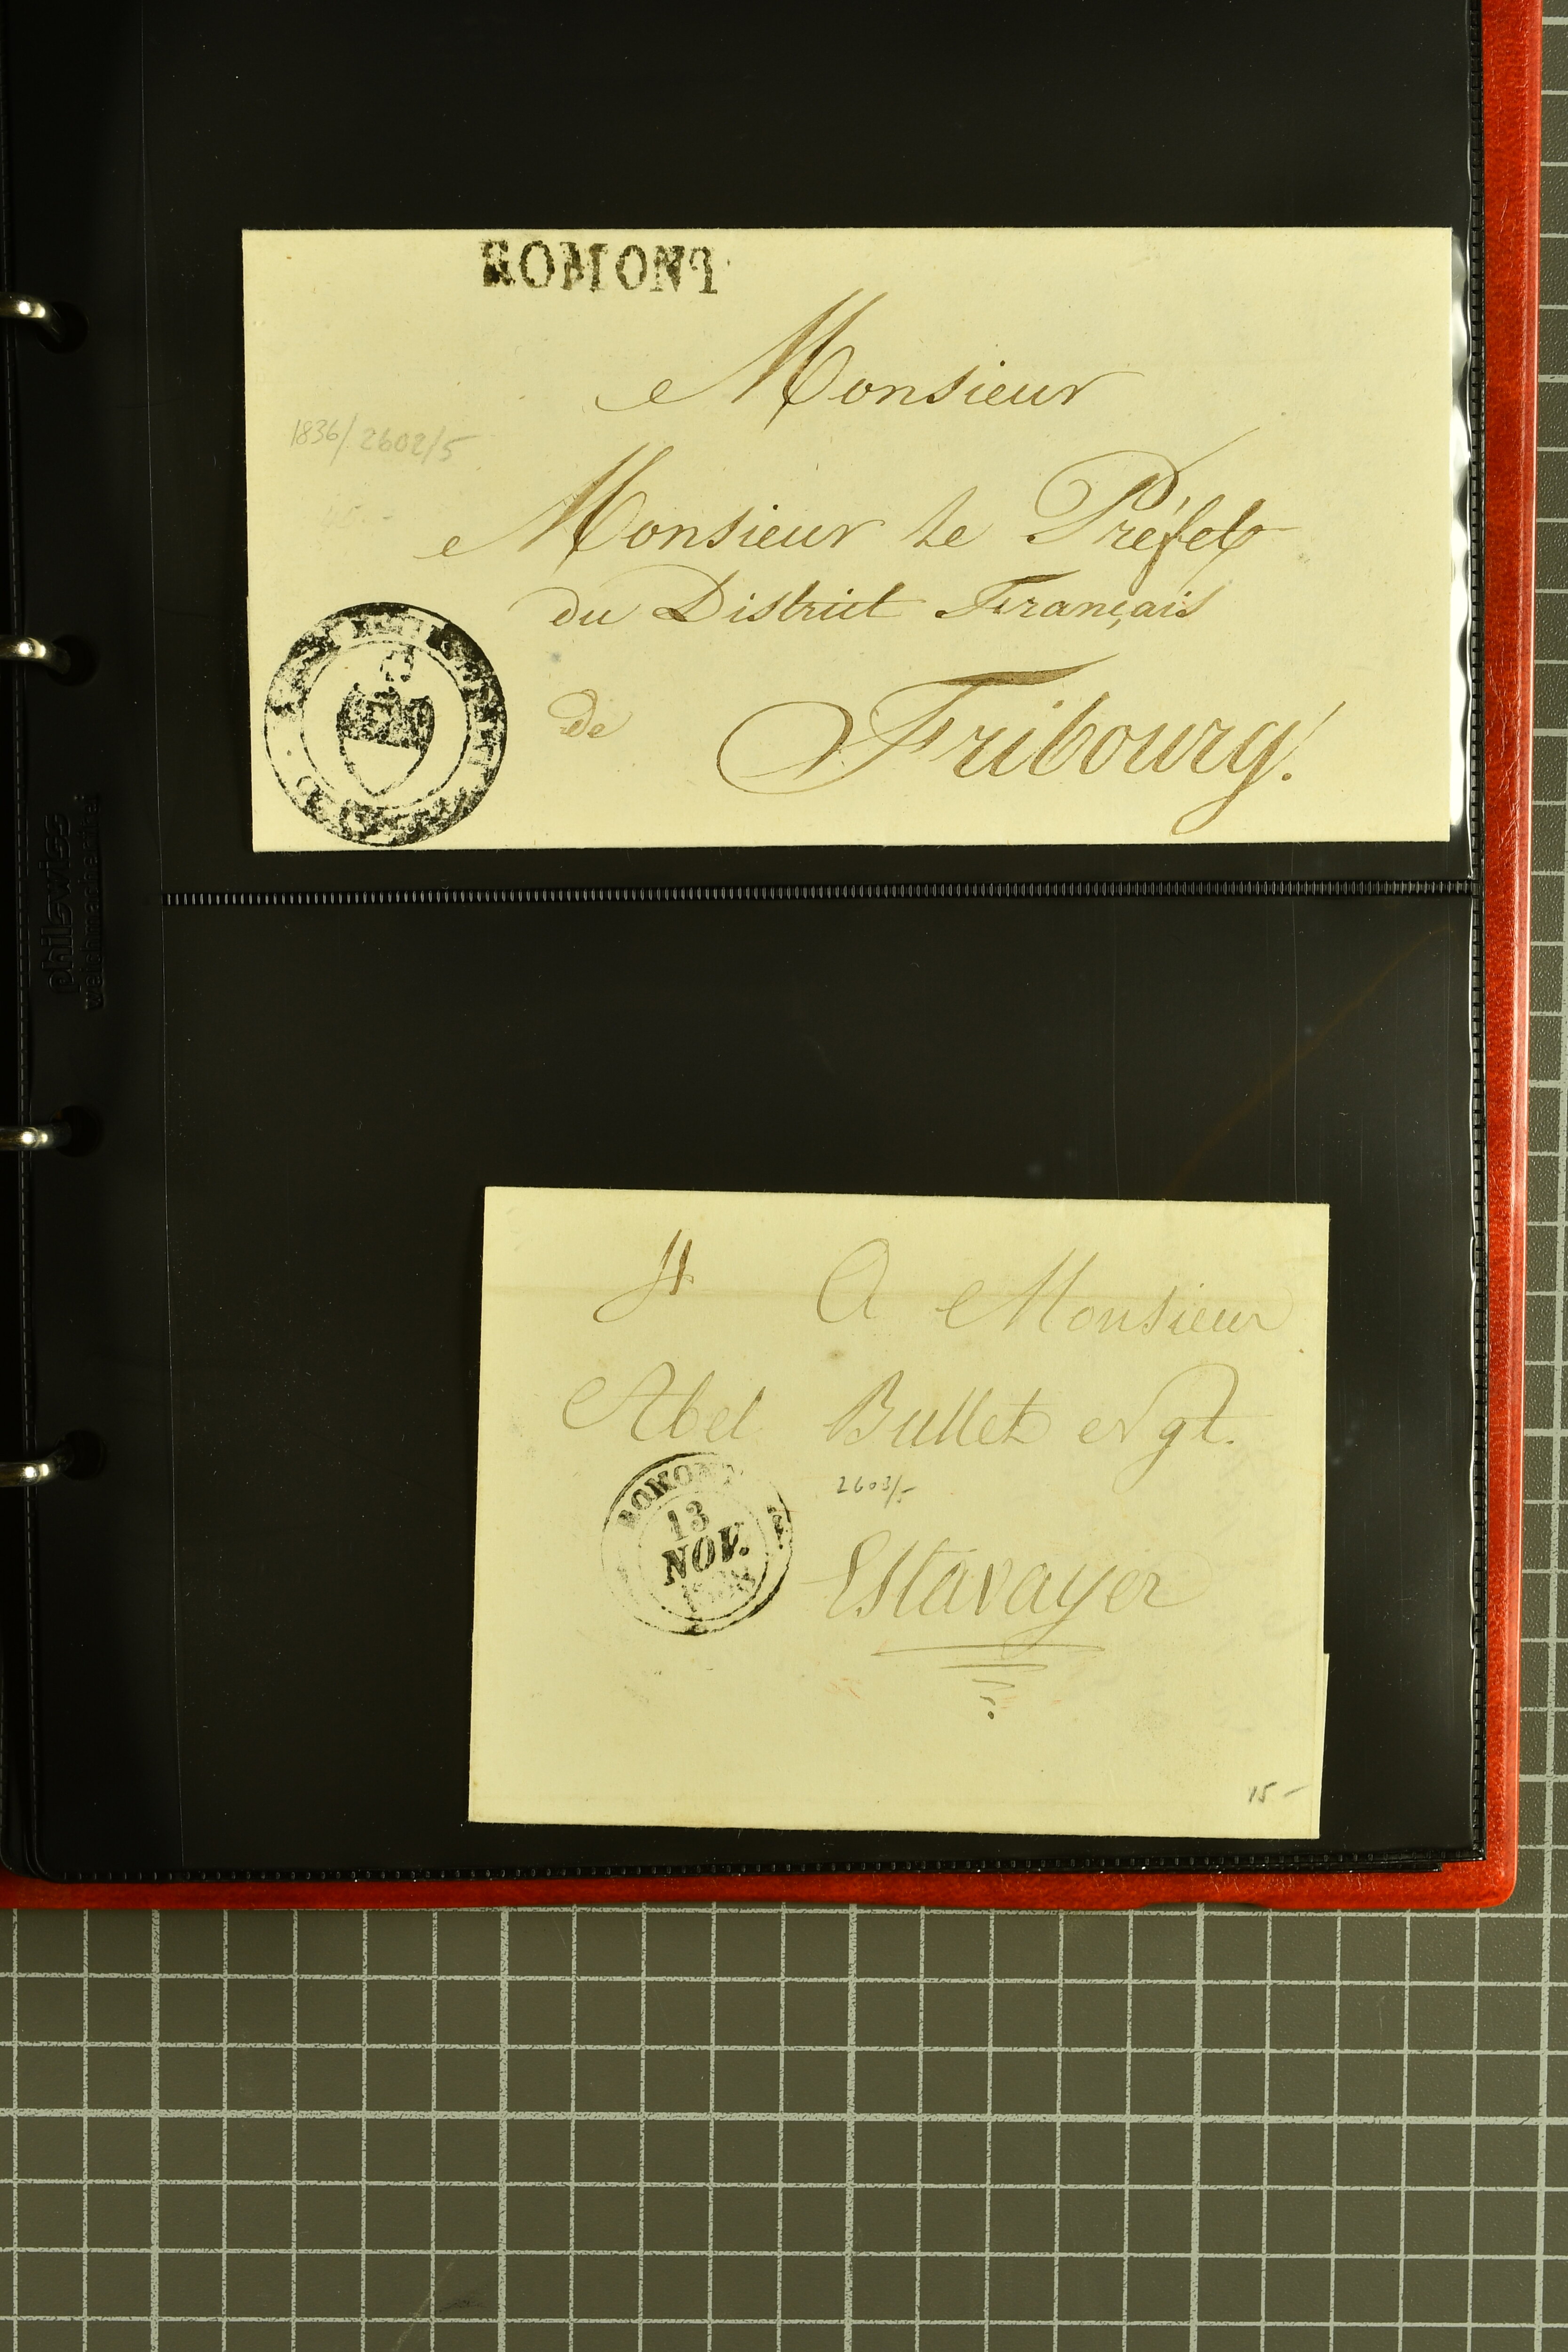 ROMONT
Monsieur
1836/2602/5
Monsieur le Préfet
du District Français
de Fribourg.
philswiss
A Monsieur
Abel Bullet Ngt.
ROMONT
13
NOV.
2603/5
Estavayer
15 –